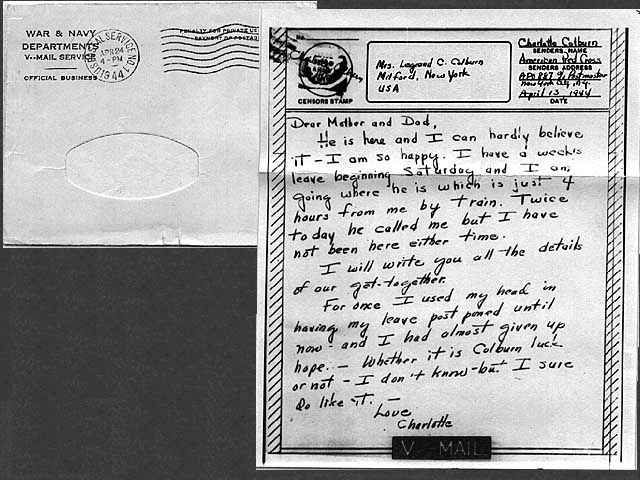 WAR & NAVY
DEPARTMENTS
V--MAIL SERVICE
OFFICIAL BUSINESS
APR 24
4-PM
1944
PENALTY FOR PRIVATE USE
PAYMENT OF POSTAGE
No.
CENSORS STAMP
Mrs. Legrand C. Colburn
Milford, New York
USA
Charlotte Colburn
SENDERS NAME
American Red Cross
SENDERS ADDRESS
APO 887 % Postmaster
New York City, N.Y.
April 13, 1944
DATE
Dear Mother and Dad,
He is here and I can hardly believe
it - I am so happy. I have a week's
leave beginning Saturday and I am
going where he is which is just 4
hours from me by train. Twice
today he called me but I have
not been here either time.
I will write you all the details
of our get-together.
For once I used my head in
having my leave postponed until
now - and I had almost given up
hope. - Whether it is Colburn luck
or not - I don't know - but I sure
do like it. -
Love
Charlotte
V - MAIL